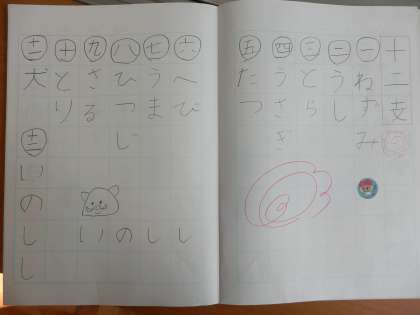 十二支
一 ねずみ
二 うし
三 とら
四 うさぎ
五 たつ
六 へび
七 うま
八 ひつじ
九 さる
十 とり
十一 犬
十二 いのしし
いのしし